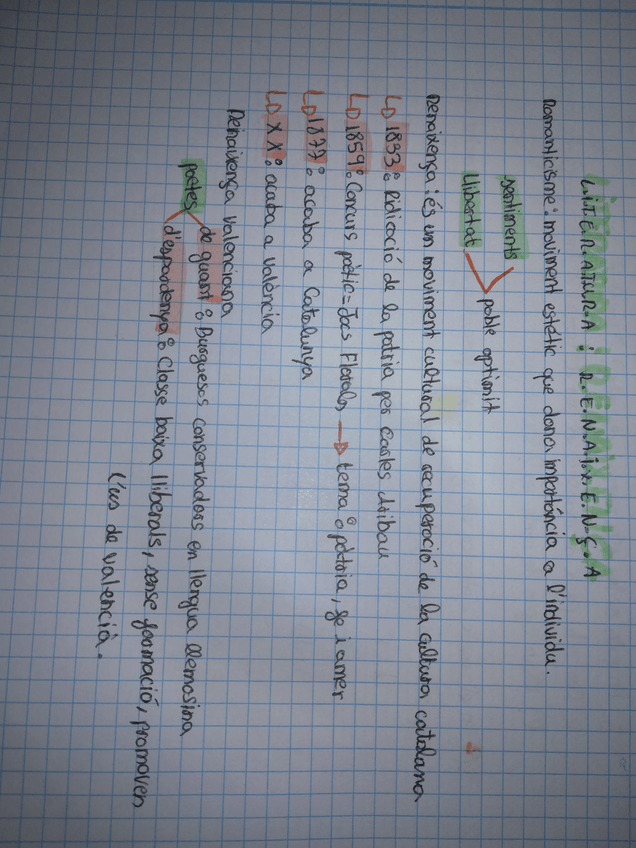 L.I.T.E.R.A.T.U.R.A : R.E.N.A.I.X.E.N.Ç.A
Romanticisme: moviment estétic que dona importáncia a l'individu.
sentiments
llibertat
poble optimist
Renaixença: és un moviment cultural de recuperació de la cultura catalana
1833: de la patria per Carles Aribau
1859: Concurs poètic = Jocs Florals → tema: pàtria, fe i amor
1877: acaba a Catalunya
XX: acaba a València
Renaixença valenciana
poetes
de guant: Burguesos conservadors en llengua llemosina
d'espardenya: Classe baixa lliberals, sense formació, promoven
l'ús de valencià.